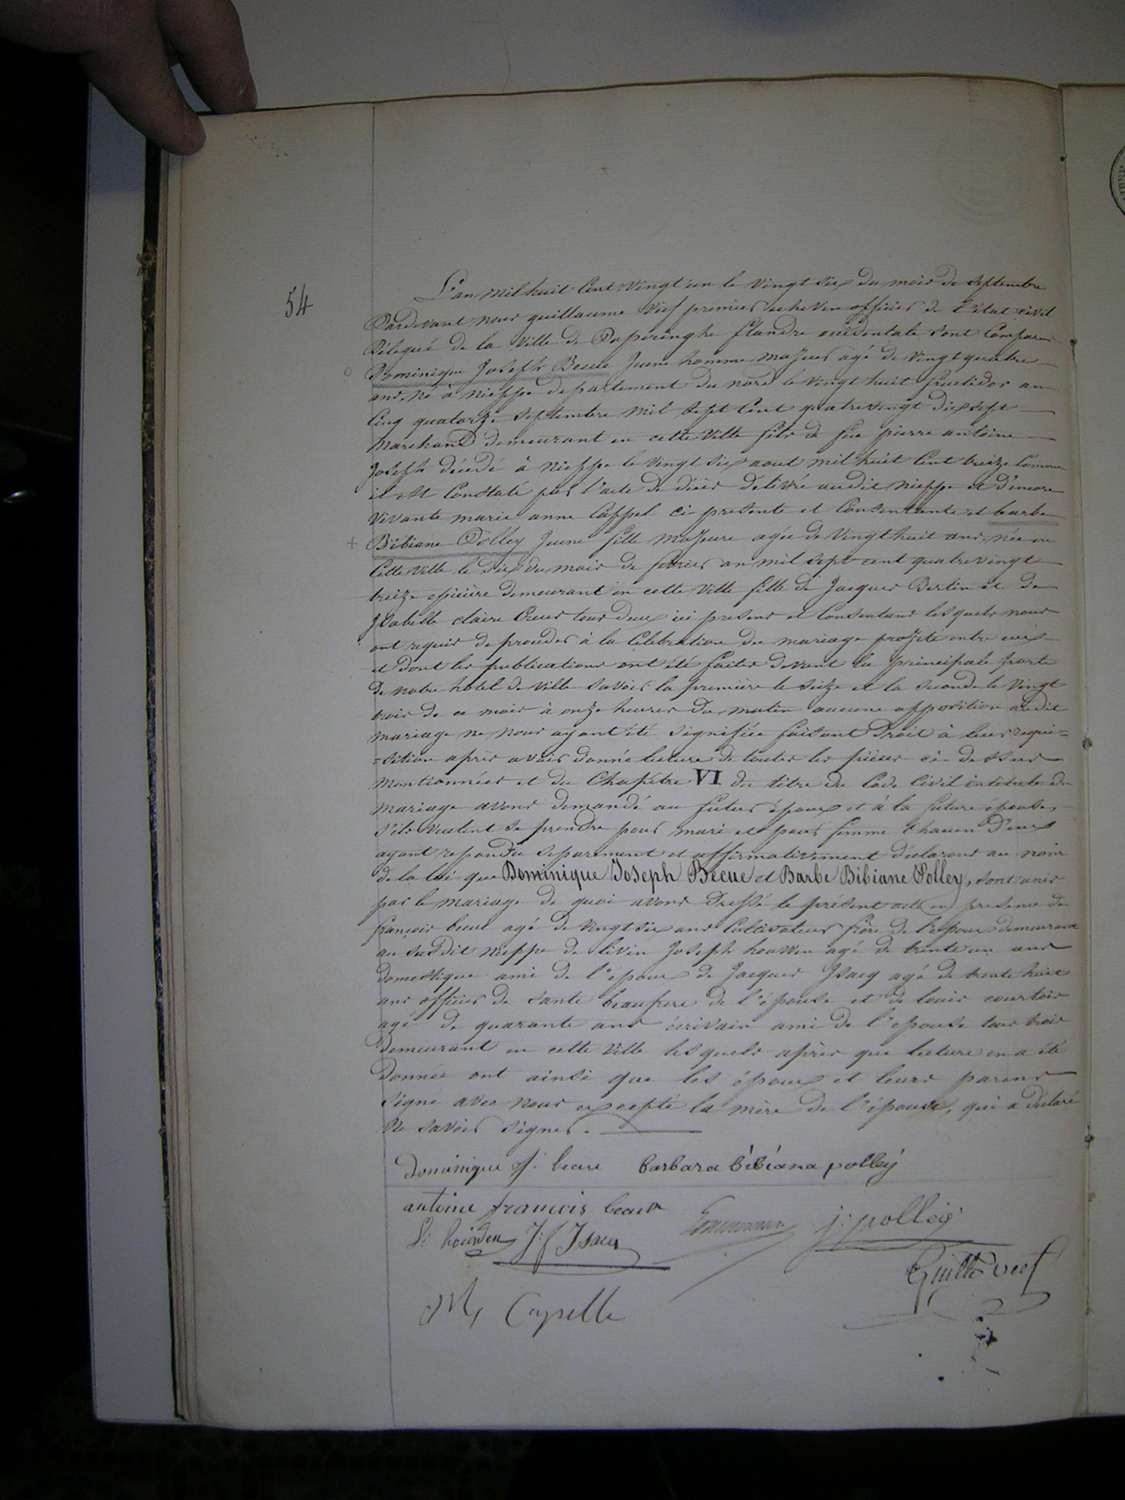 54
L'an mil huit Cent Vingt un le Vingt six du mois de Septembre
Pardevant nous guillaume Vief premier Echevin officier de l'état civil
Délégué de la Ville de Poperinghe flandre occidentale sont Comparus
Dominique Joseph Becue Jeune homme majeur agé de Vingt quatre
ans, né à Nieppe departement du nord le Vingt huit fructidor an
Cinq quatorze Septembre mil Sept Cent quatrevingt dix sept
Marchand demeurant en cette Ville fils de feu pierre antoine
Joseph décédé à Nieppe le Vingt six aout mil huit Cent treize Comme
il est Constaté par l'acte de décès délivré audit Nieppe et d'encore
Vivante marie anne Cappel ci presente et Consentante et barbe
Bibiane Polley Jeune fille majeure agée de Vingt huit ans, née en
Cette Ville le six du mois de fevrier an mil sept cent quatre vingt
treize epicière demeurant en cette Ville fille de Jacques Bertin et de
Isabelle Claire tous deux ici presens et Consentans lesquels nous
ont requis de proceder à la Célébration du mariage projeté entre eux
et dont les publications ont été faites devant la principale porte
de notre hôtel de Ville Savoir la première le Seize et la Seconde le Vingt
trois de ce mois à onze heures du matin aucune opposition audit
mariage ne nous ayant été Signifiée faisant Droit à leur requi=
=sition après avoir donné lecture de toutes les pièces ci-dessus
Mentionnées et du Chapitre VI du titre du Code Civil intitulé du
Mariage avons demandé au futur époux et à la future épouse,
S'ils veulent se prendre pour mari et pour femme Chacun d'eux
ayant repondu Séparement et affirmativement déclarons au nom
de la loi que Dominique Joseph Becue et Barbe Bibiane Polley, sont unis
par le mariage de quoi avons Dressé le présent acte en presence de
françois becue agé de Vingt six ans Cultivateur frère de l'époux demeurant
au susdit Nieppe de livin Joseph agé de trente un ans
domestique ami de l'époux de Jacques Isacq agé de trente huit
ans officier de Santé beaufrere de l'épouse et de louis courtois
agé de quarante ans écrivain ami de l'épouse tous trois
demeurant en cette Ville lesquels après que lecture en a été
donnée ont ainsi que les époux et leurs parens
Signé avec nous excepté la mère de l'épouse, qui a déclaré
Ne savoir Signer.
dominique j: becue barbara bibiana polleÿ
antoine francois becue
L: J: f Isacq j: polleÿ
Guille Vief
M Capelle